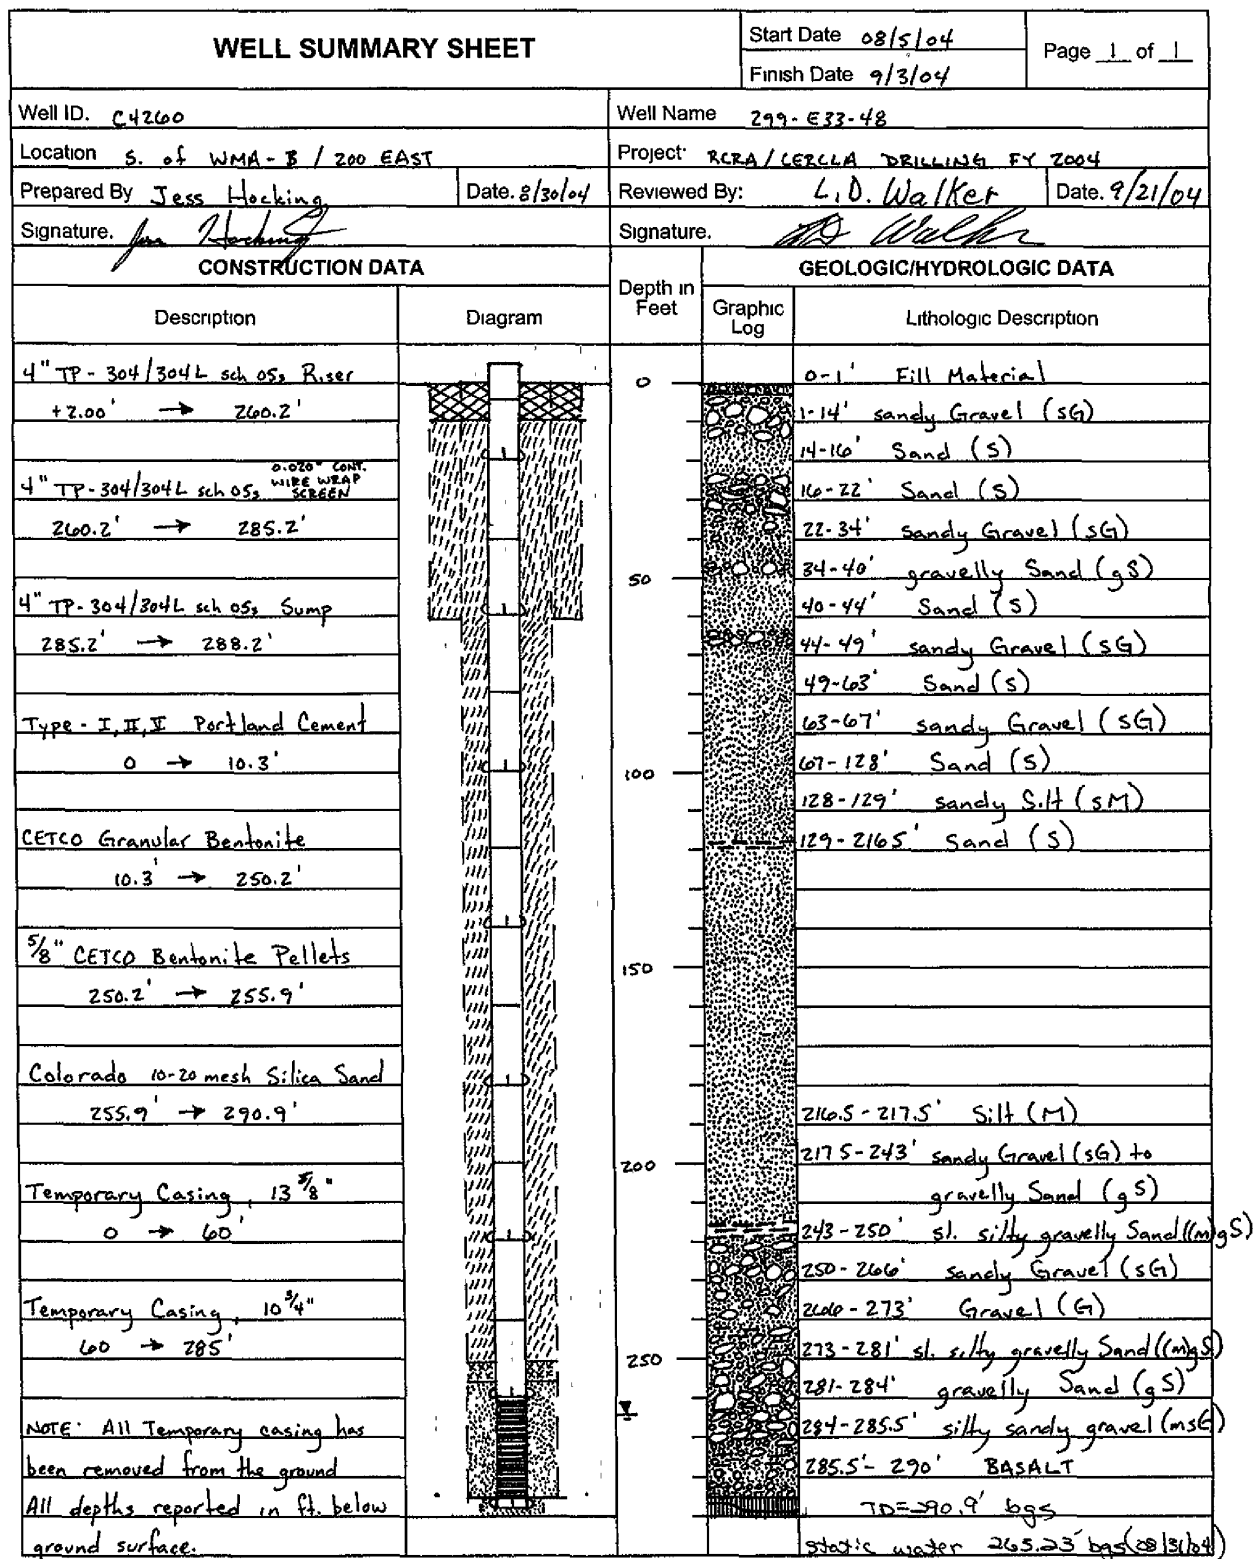 WELL SUMMARY SHEET
Start Date 08/5/04
Finish Date 9/3/04
Page 1 of 1
Well ID. C4260
Well Name 299-E33-48
Location S. of WMA-B / 200 EAST
Project: RCRA/CERCLA DRILLING FY 2004
Prepared By Jess Hocking
Date. 8/30/04
Reviewed By: L.D. Walker
Date. 9/21/04
Signature. Jess Hocking
Signature. LD Walker
CONSTRUCTION DATA
Depth in Feet
GEOLOGIC/HYDROLOGIC DATA
Description
Diagram
Graphic Log
Lithologic Description
4" TP-304/304L sch 05s Riser
+2.00' → 260.2'
4" TP-304/304L sch 05s 0.020" CONT. WIRE WRAP SCREEN
260.2' → 285.2'
4" TP-304/304L sch 05s Sump
285.2' → 288.2'
Type - I, II, V Portland Cement
0 → 10.3'
CETCO Granular Bentonite
10.3' → 250.2'
5/8" CETCO Bentonite Pellets
250.2' → 255.9'
Colorado 10-20 mesh Silica Sand
255.9' → 290.9'
Temporary Casing, 13 3/8"
0 → 60'
Temporary Casing, 10 3/4"
60 → 285'
NOTE: All Temporary casing has
been removed from the ground
All depths reported in ft. below
ground surface.
0
50
100
150
200
250
0-1' Fill Material
1-14' sandy Gravel (sG)
14-16' Sand (S)
16-22' Sand (S)
22-34' sandy Gravel (sG)
34-40' gravelly Sand (gS)
40-44' Sand (S)
44-49' sandy Gravel (sG)
49-63' Sand (S)
63-67' sandy Gravel (sG)
67-128' Sand (S)
128-129' sandy Silt (sM)
129-216.5' Sand (S)
216.5-217.5' Silt (M)
217.5-243' sandy Gravel (sG) to
gravelly Sand (gS)
243-250' sl. silty gravelly Sand ((m)gS)
250-266' sandy Gravel (sG)
266-273' Gravel (G)
273-281' sl. silty gravelly Sand ((m)gS)
281-284' gravelly Sand (gS)
284-285.5' silty sandy gravel (msG)
285.5'-290' BASALT
TD=290.9' bgs
static water 265.23' bgs (08/31/04)